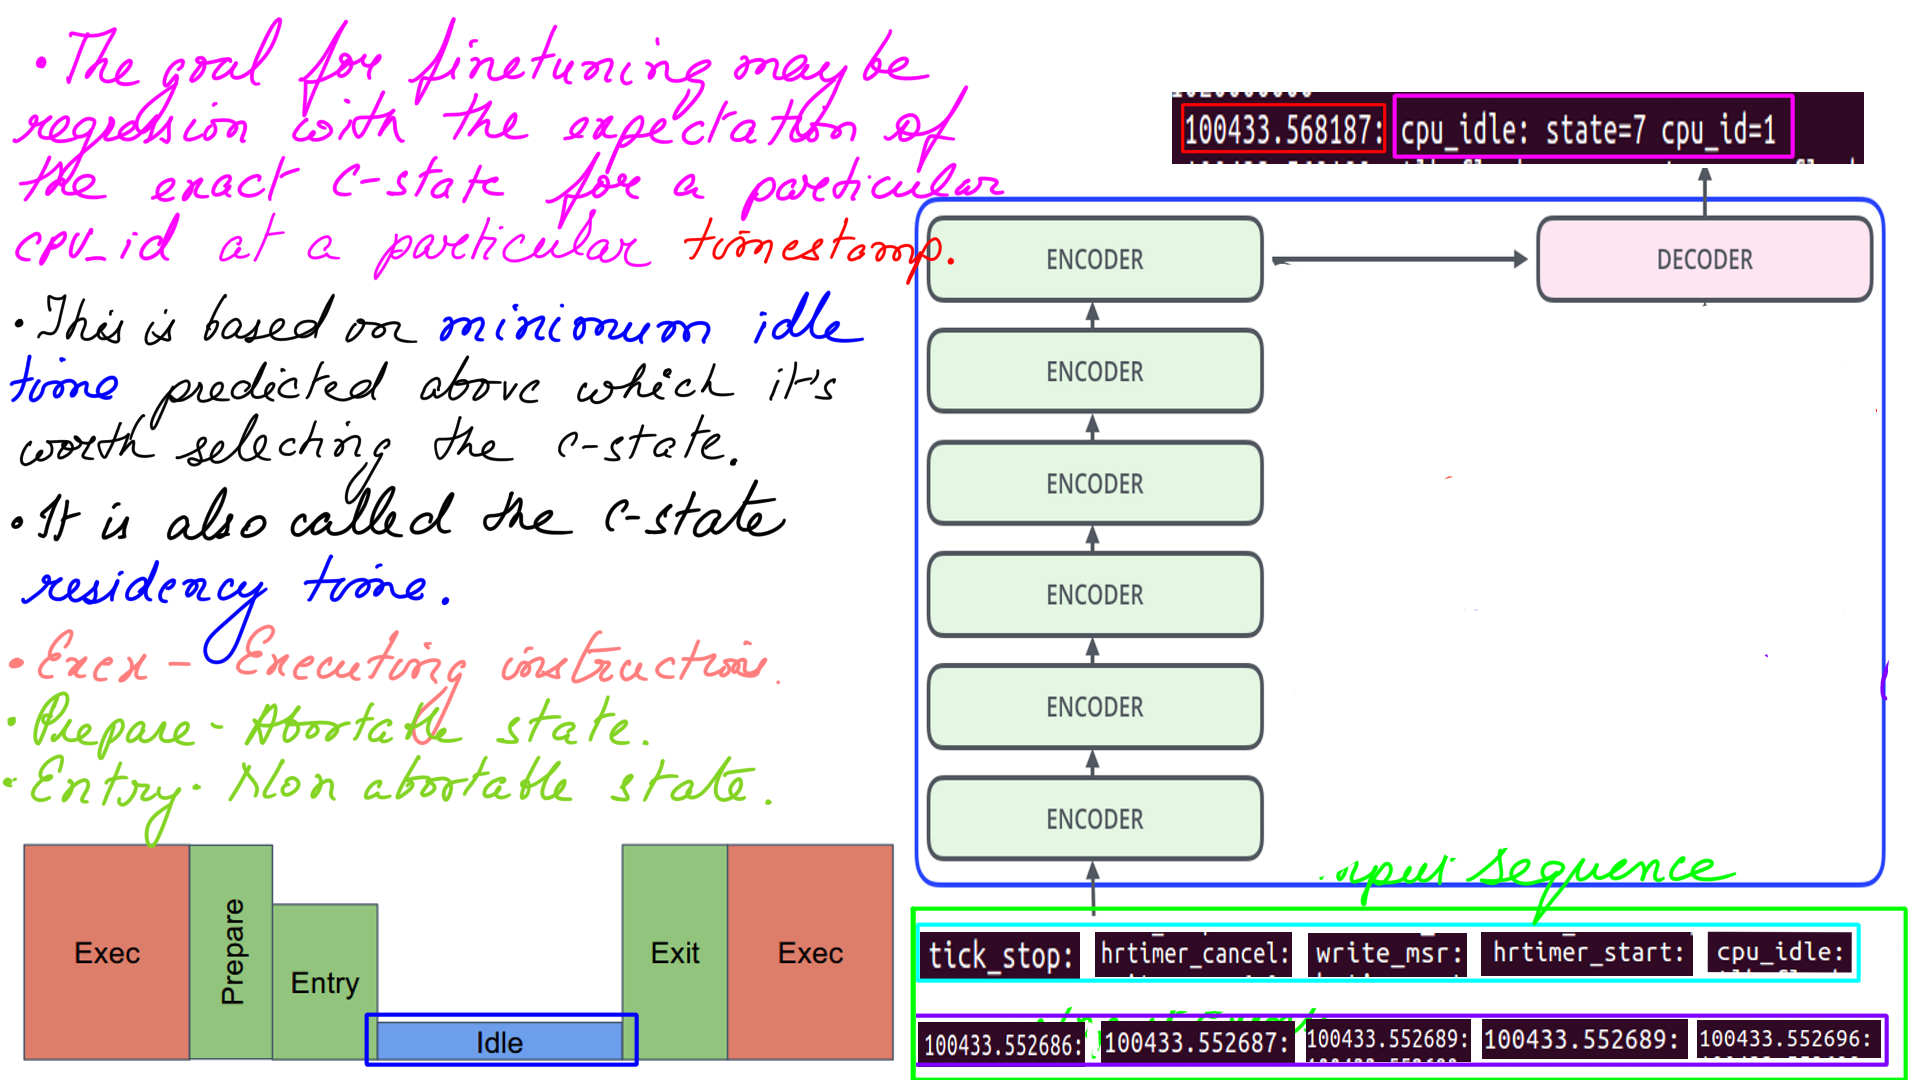 • The goal for finetuning may be
regression with the expectation of
the exact C-state for a particular
cpu_id at a particular timestamp.
• This is based on minimum idle
time predicted above which it's
worth selecting the C-state.
• It is also called the C-state
residency time.
• Exex - Executing instructions.
• Prepare - Abortable state.
• Entry - Non abortable state.
Exec
Prepare
Entry
Idle
Exit
Exec
100433.568187: cpu_idle: state=7 cpu_id=1
ENCODER
DECODER
ENCODER
ENCODER
ENCODER
ENCODER
ENCODER
sequence
tick_stop: hrtimer_cancel: write_msr: hrtimer_start: cpu_idle:
100433.552686: 100433.552687: 100433.552689: 100433.552689: 100433.552696: